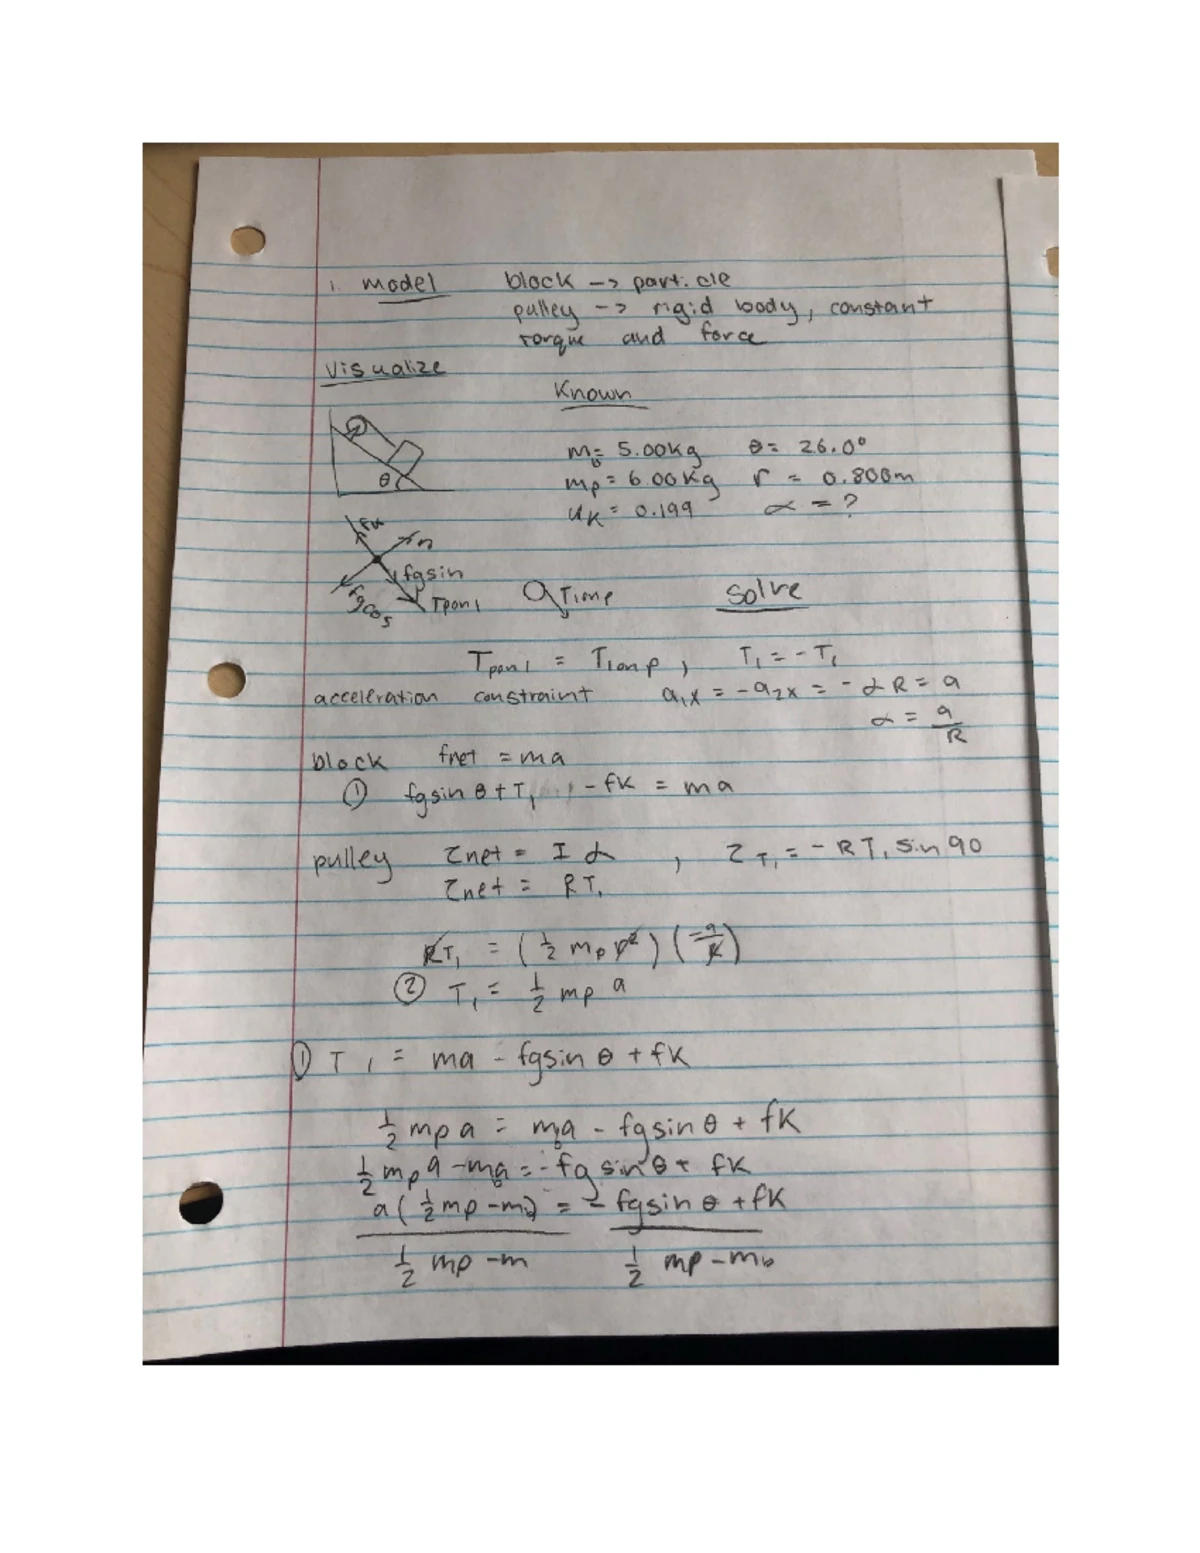 1. model block -> particle
pulley -> rigid body, constant
torque and force
Visualize
Known
m_b = 5.00kg θ = 26.0°
mp = 6.00kg r = 0.800m
uK = 0.199 α = ?
θ
fK
n
fgsin
fgcos
Tpon1
T1onp
Solve
Tpon1 = T1onp, T₁ = - T₁
acceleration constraint a₁x = -a₂x = - αR = a
α = a/R
block fnet = ma
① fgsin θ + T₁ - fK = ma
pulley τnet = Iα , τ_T₁ = - RT₁ sin 90
τnet = RT₁
RT₁ = (½ mp R²) (-a/R)
② T₁ = ½ mp a
① T₁ = ma - fgsin θ + fK
½ mp a = m_b a - fgsin θ + fK
½ mp a - m_b a = - fg sin θ + fK
a (½ mp - m_b) = - fgsin θ + fK
½ mp - m ½ mp - m_b